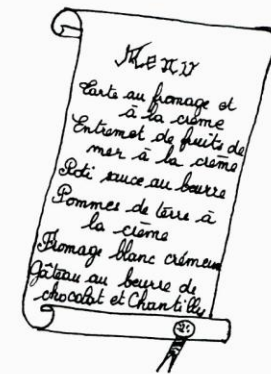 MENU
Tarte au fromage et
à la crème
Entremet de fruits de
mer à la crème
Roti sauce au beurre
Pommes de terre à
la creme
Fromage blanc crémeux
Gâteau au beurre de
chocolat et Chantilly